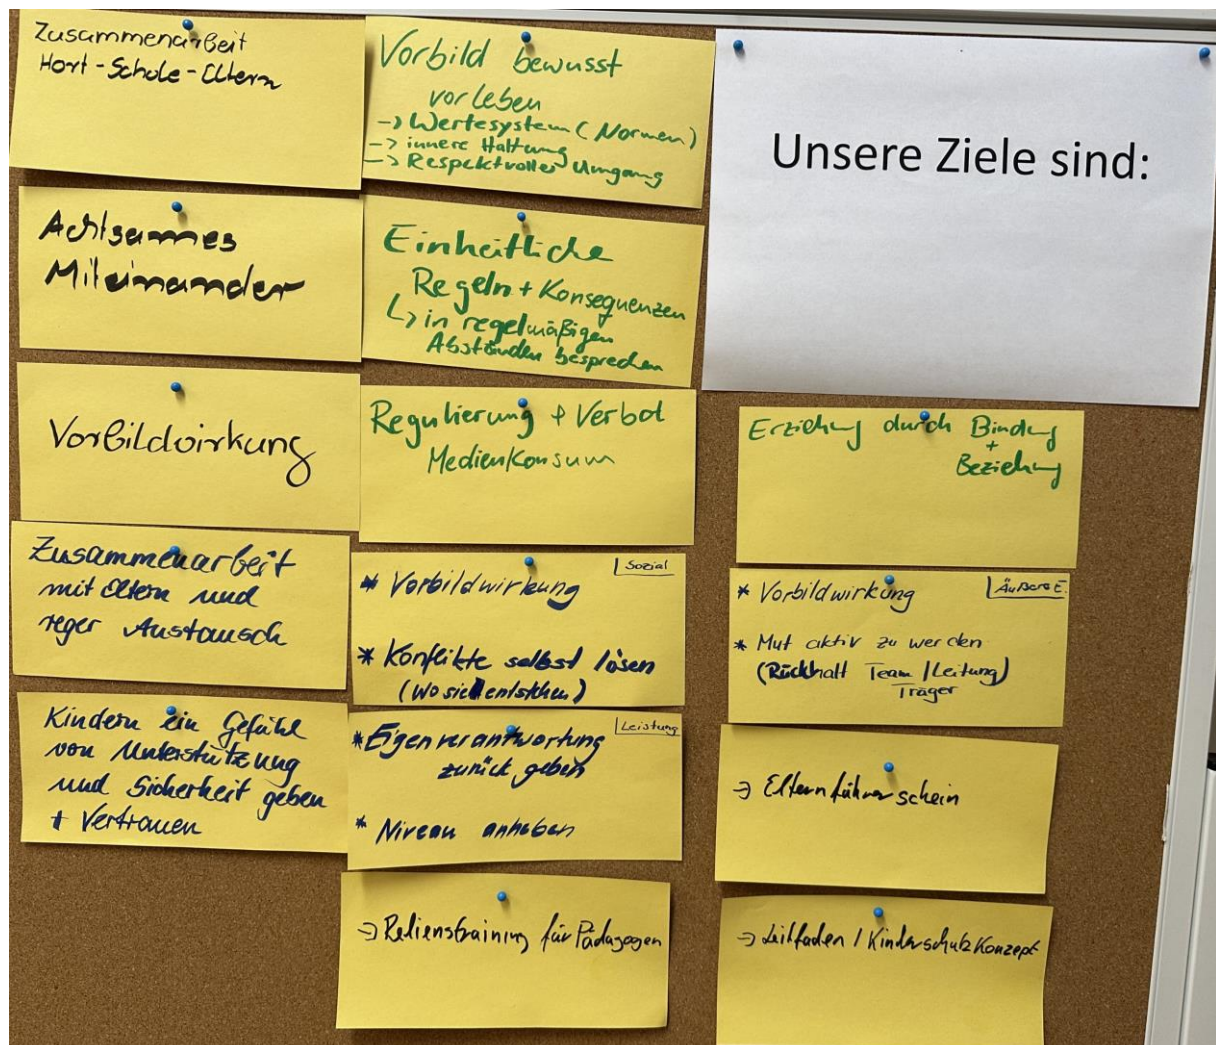 Zusammenarbeit
Hort - Schule - Eltern
Achtsames
Miteinander
Vorbildwirkung
Zusammenarbeit
mit Eltern und
reger Austausch
Kindern ein Gefühl
von Unterstützung
und Sicherheit geben
+ Vertrauen
Vorbild bewusst
vorleben
-> Wertesystem (Normen)
-> innere Haltung
-> Respektvoller Umgang
Einheitliche
Regeln + Konsequenzen
↳ in regelmäßigen
Abständen besprechen
Regulierung + Verbot
Medienkonsum
Sozial
* Vorbildwirkung
* Konflikte selbst lösen
(wo sie entstehen)
Leistung
* Eigenverantwortung
zurück geben
* Niveau anheben
-> für Pädagogen
Unsere Ziele sind:
Erziehung durch Bindung
+
Beziehung
Äußere E.
* Vorbildwirkung
* Mut aktiv zu werden
(Rückhalt Team / Leitung)
Träger
-> Elternführerschein
-> Leitfaden / Kinderschutzkonzept